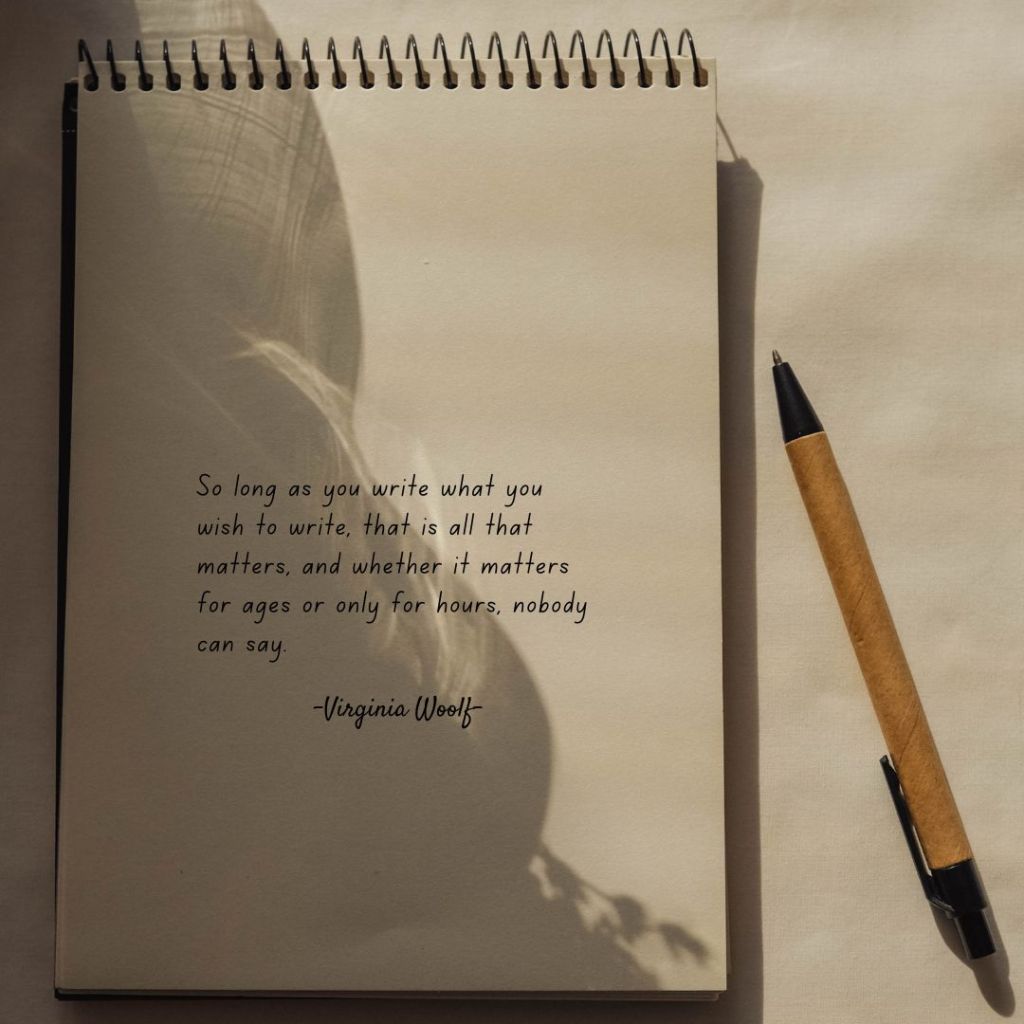 So long as you write what you
wish to write, that is all that
matters, and whether it matters
for ages or only for hours, nobody
can say.
-Virginia Woolf-